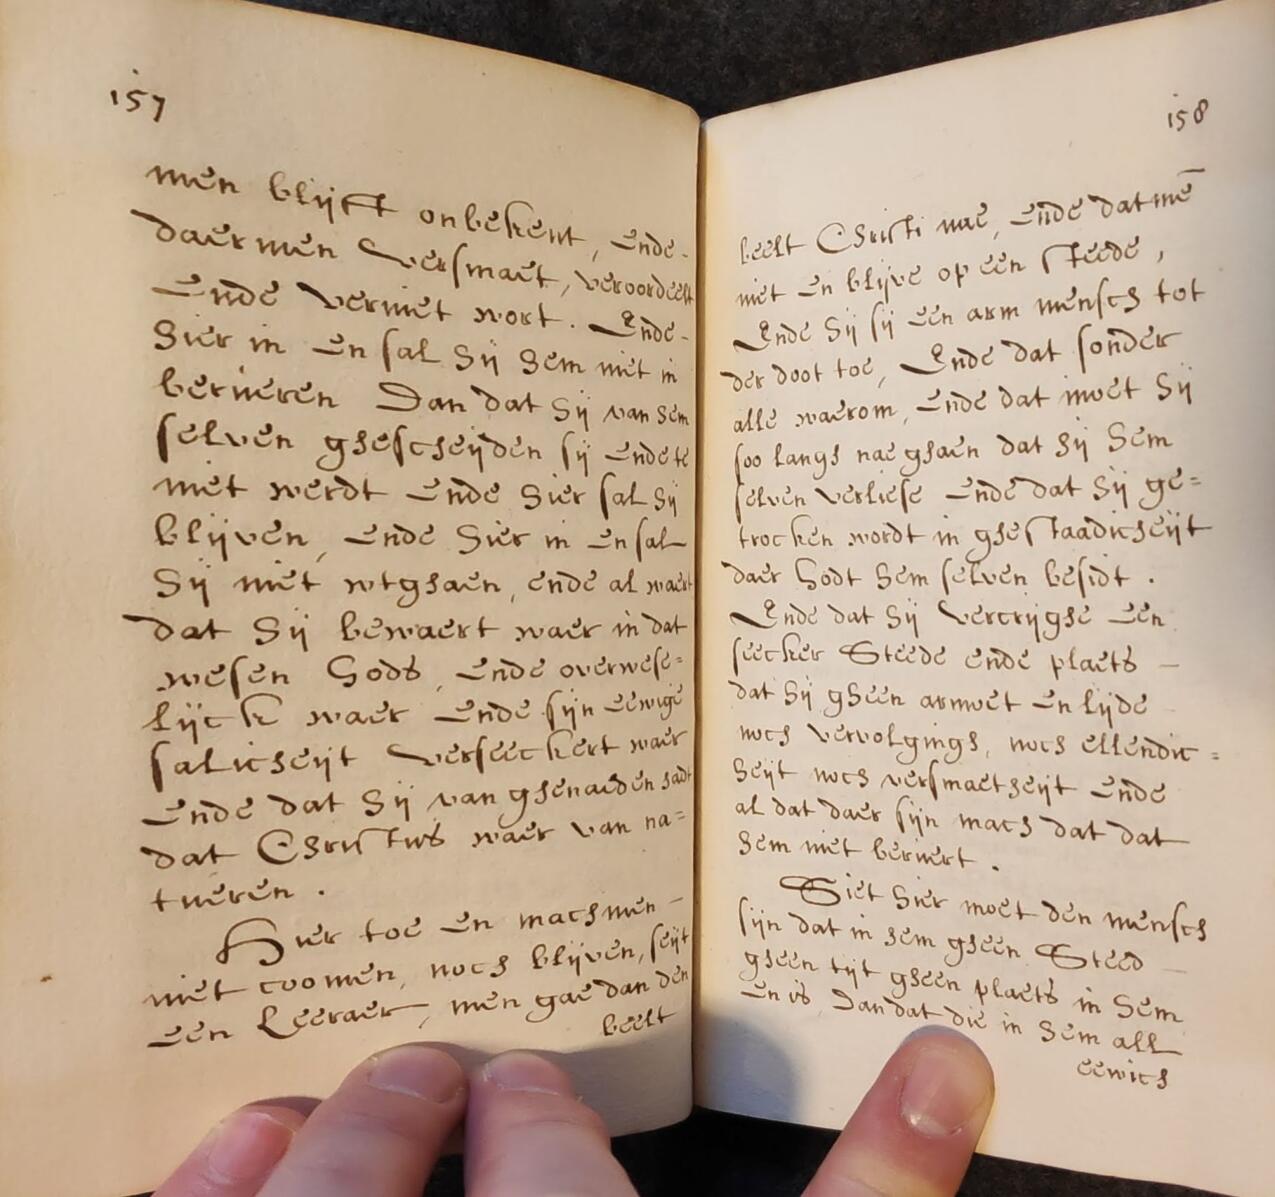 157
men blijft onbekent, ende
daer men versmaet, veroordeelt
Ende verniet wort. Ende
hier in en sal hij hem niet in
berueren Dan dat hij van hem
selven ghescheijden sij ende te
niet werdt Ende hier sal hij
blijven, Ende hier in en sal
hij niet wtghaen, ende al waert
dat hij bewaert waer in dat
wesen Gods, Ende overwese=
lijck waer Ende sijn eewige
salicheijt verseeckert waer
Ende dat hij van ghenaeden hadt
dat Christus waer van na=
tueren.
Hier toe en mach men
niet coomen, noch blijven, seijt
een Leeraer, men gae dan den
beelt
158
beelt Christi nae, Ende dat mē
niet en blijve op een steede,
Ende hij sij een arm mensch tot
der doot toe, Ende dat sonder
alle waerom, Ende dat moet hij
soo langh nae ghaen dat hij hem
selven verliese Ende dat hij ge=
trocken wordt in ghestaadicheijt
daer Godt hem selven besidt.
Ende dat hij vercrijghe een
seecker Steede ende plaets
dat hij gheen armoet en lijde
noch vervolgingh, noch ellendic=
heijt noch versmaetheijt Ende
al dat daer sijn mach dat dat
hem niet beruert.
Siet hier moet den mensch
sijn dat in hem gheen Steed
gheen tijt gheen plaets in hem
en is, Dan dat die in hem all
eewich